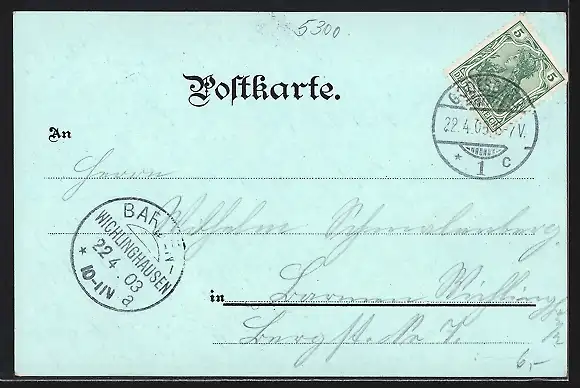 5300
5 5
Postkarte.
22.4.03. 6-7V.
* 1 c
An
Herrn
Wilhelm Schmalenberg
BARMEN-
WICHLINGHAUSEN
22 4. 03
* 10-11V a
in Barmen Wichling
Bergst. No 7.
6,-